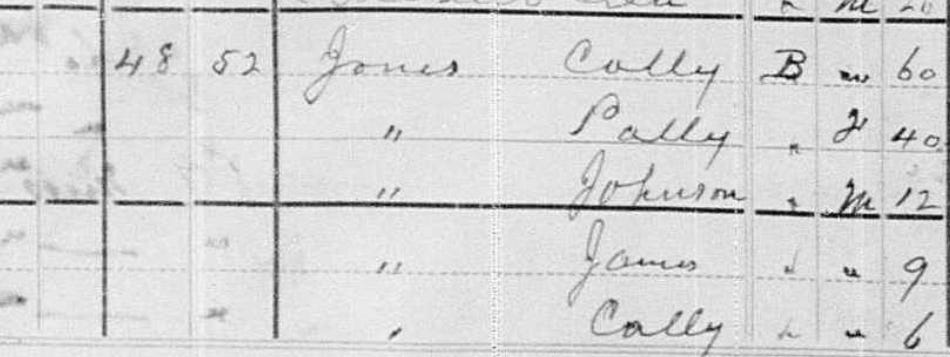 M 20
48 52 Jones Cally B M 60
" Polly " F 40
" Johnson " M 12
" James " " 9
" Cally " " 6